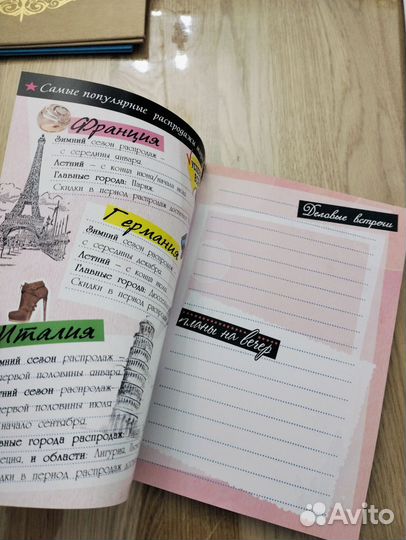 Самые популярные распродажи
Франция
Зимний сезон распродаж –
с середины января.
Летний – с конца июня/начала июля
Главные города: Париж.
Скидки в период распродаж
Германия
Зимний сезон распродаж –
с середины декабря.
Летний – с конца июля.
Главные города:
Скидки в период распродаж
Италия
Зимний сезон распродаж –
первой половины января.
сезон распродаж–
первой половины июля
начало сентября.
города распродаж:
и области: Лигурия,
в период распродаж
Деловые встречи
планы на вечер
Avito